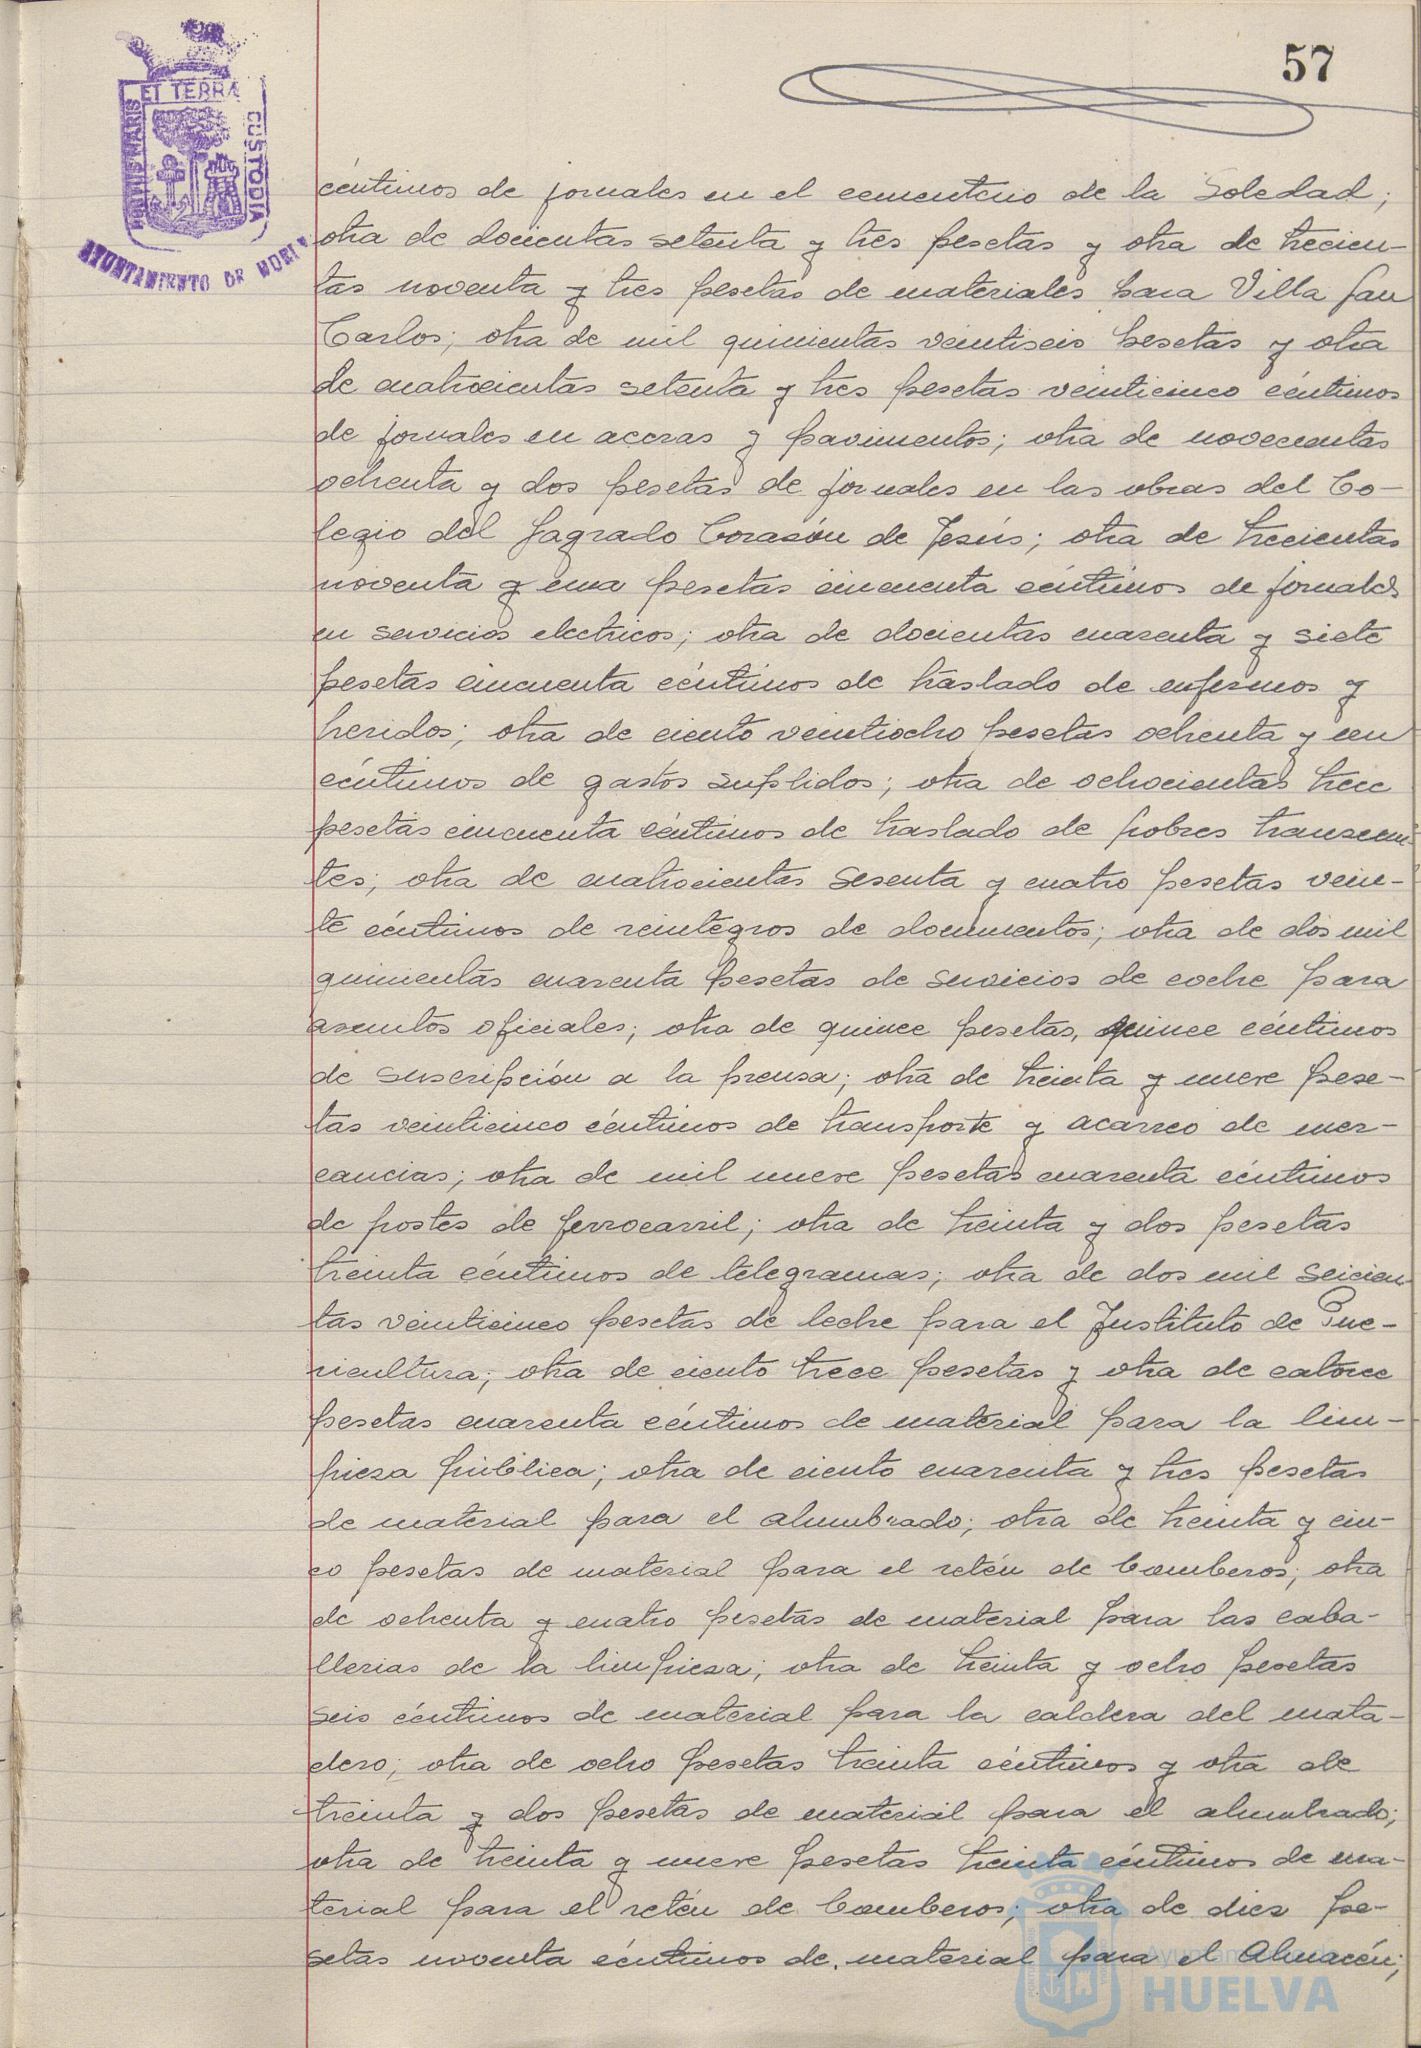 57
PORTUS MARIS
ET TERRA
CUSTODIA
AYUNTAMIENTO DE HUELVA
céntimos de jornales en el cementerio de la Soledad;
otra de docientas setenta y tres pesetas y otra de trecien-
tas noventa y tres pesetas de materiales para Villa San
Carlos; otra de mil quinientas veintiseis pesetas y otra
de cuatrocientas setenta y tres pesetas veinticinco céntimos
de jornales en aceras y pavimentos; otra de novecientas
ochenta y dos pesetas de jornales en las obras del Co-
legio del Sagrado Corasón de Jesús; otra de trecientas
noventa y una pesetas cincuenta céntimos de jornales
en servicios electricos; otra de docientas cuarenta y siete
pesetas cincuenta céntimos de traslado de enfermos y
heridos; otra de ciento veintiocho pesetas ochenta y un
céntimos de gastos suplidos; otra de ochocientas trece
pesetas cincuenta céntimos de traslado de pobres transeun-
tes; otra de cuatrocientas sesenta y cuatro pesetas vein-
te céntimos de reintegros de documentos; otra de dos mil
quinientas cuarenta pesetas de servicios de coche para
asuntos oficiales; otra de quince pesetas, quince céntimos
de suscripción a la prensa; otra de treinta y nueve pese-
tas veinticinco céntimos de transporte y acarreo de mer-
cancias; otra de mil nueve pesetas cuarenta céntimos
de postes de ferrocarril; otra de treinta y dos pesetas
treinta céntimos de telegramas; otra de dos mil seicien-
tas veinticinco pesetas de leche para el Instituto de Pue-
ricultura; otra de ciento trece pesetas y otra de catorce
pesetas cuarenta céntimos de material para la lim-
piesa pública; otra de ciento cuarenta y tres pesetas
de material para el alumbrado; otra de treinta y cin-
co pesetas de material para el retén de bomberos; otra
de ochenta y cuatro pesetas de material para las caba-
llerias de la limpiesa; otra de treinta y ocho pesetas
seis céntimos de material para la caldera del mata-
dero; otra de ocho pesetas treinta céntimos y otra de
treinta y dos pesetas de material para el alumbrado;
otra de treinta y nueve pesetas treinta céntimos de ma-
terial para el retén de bomberos; otra de diez pe-
setas noventa céntimos de material para el Almacén;
Ayuntamiento de
HUELVA